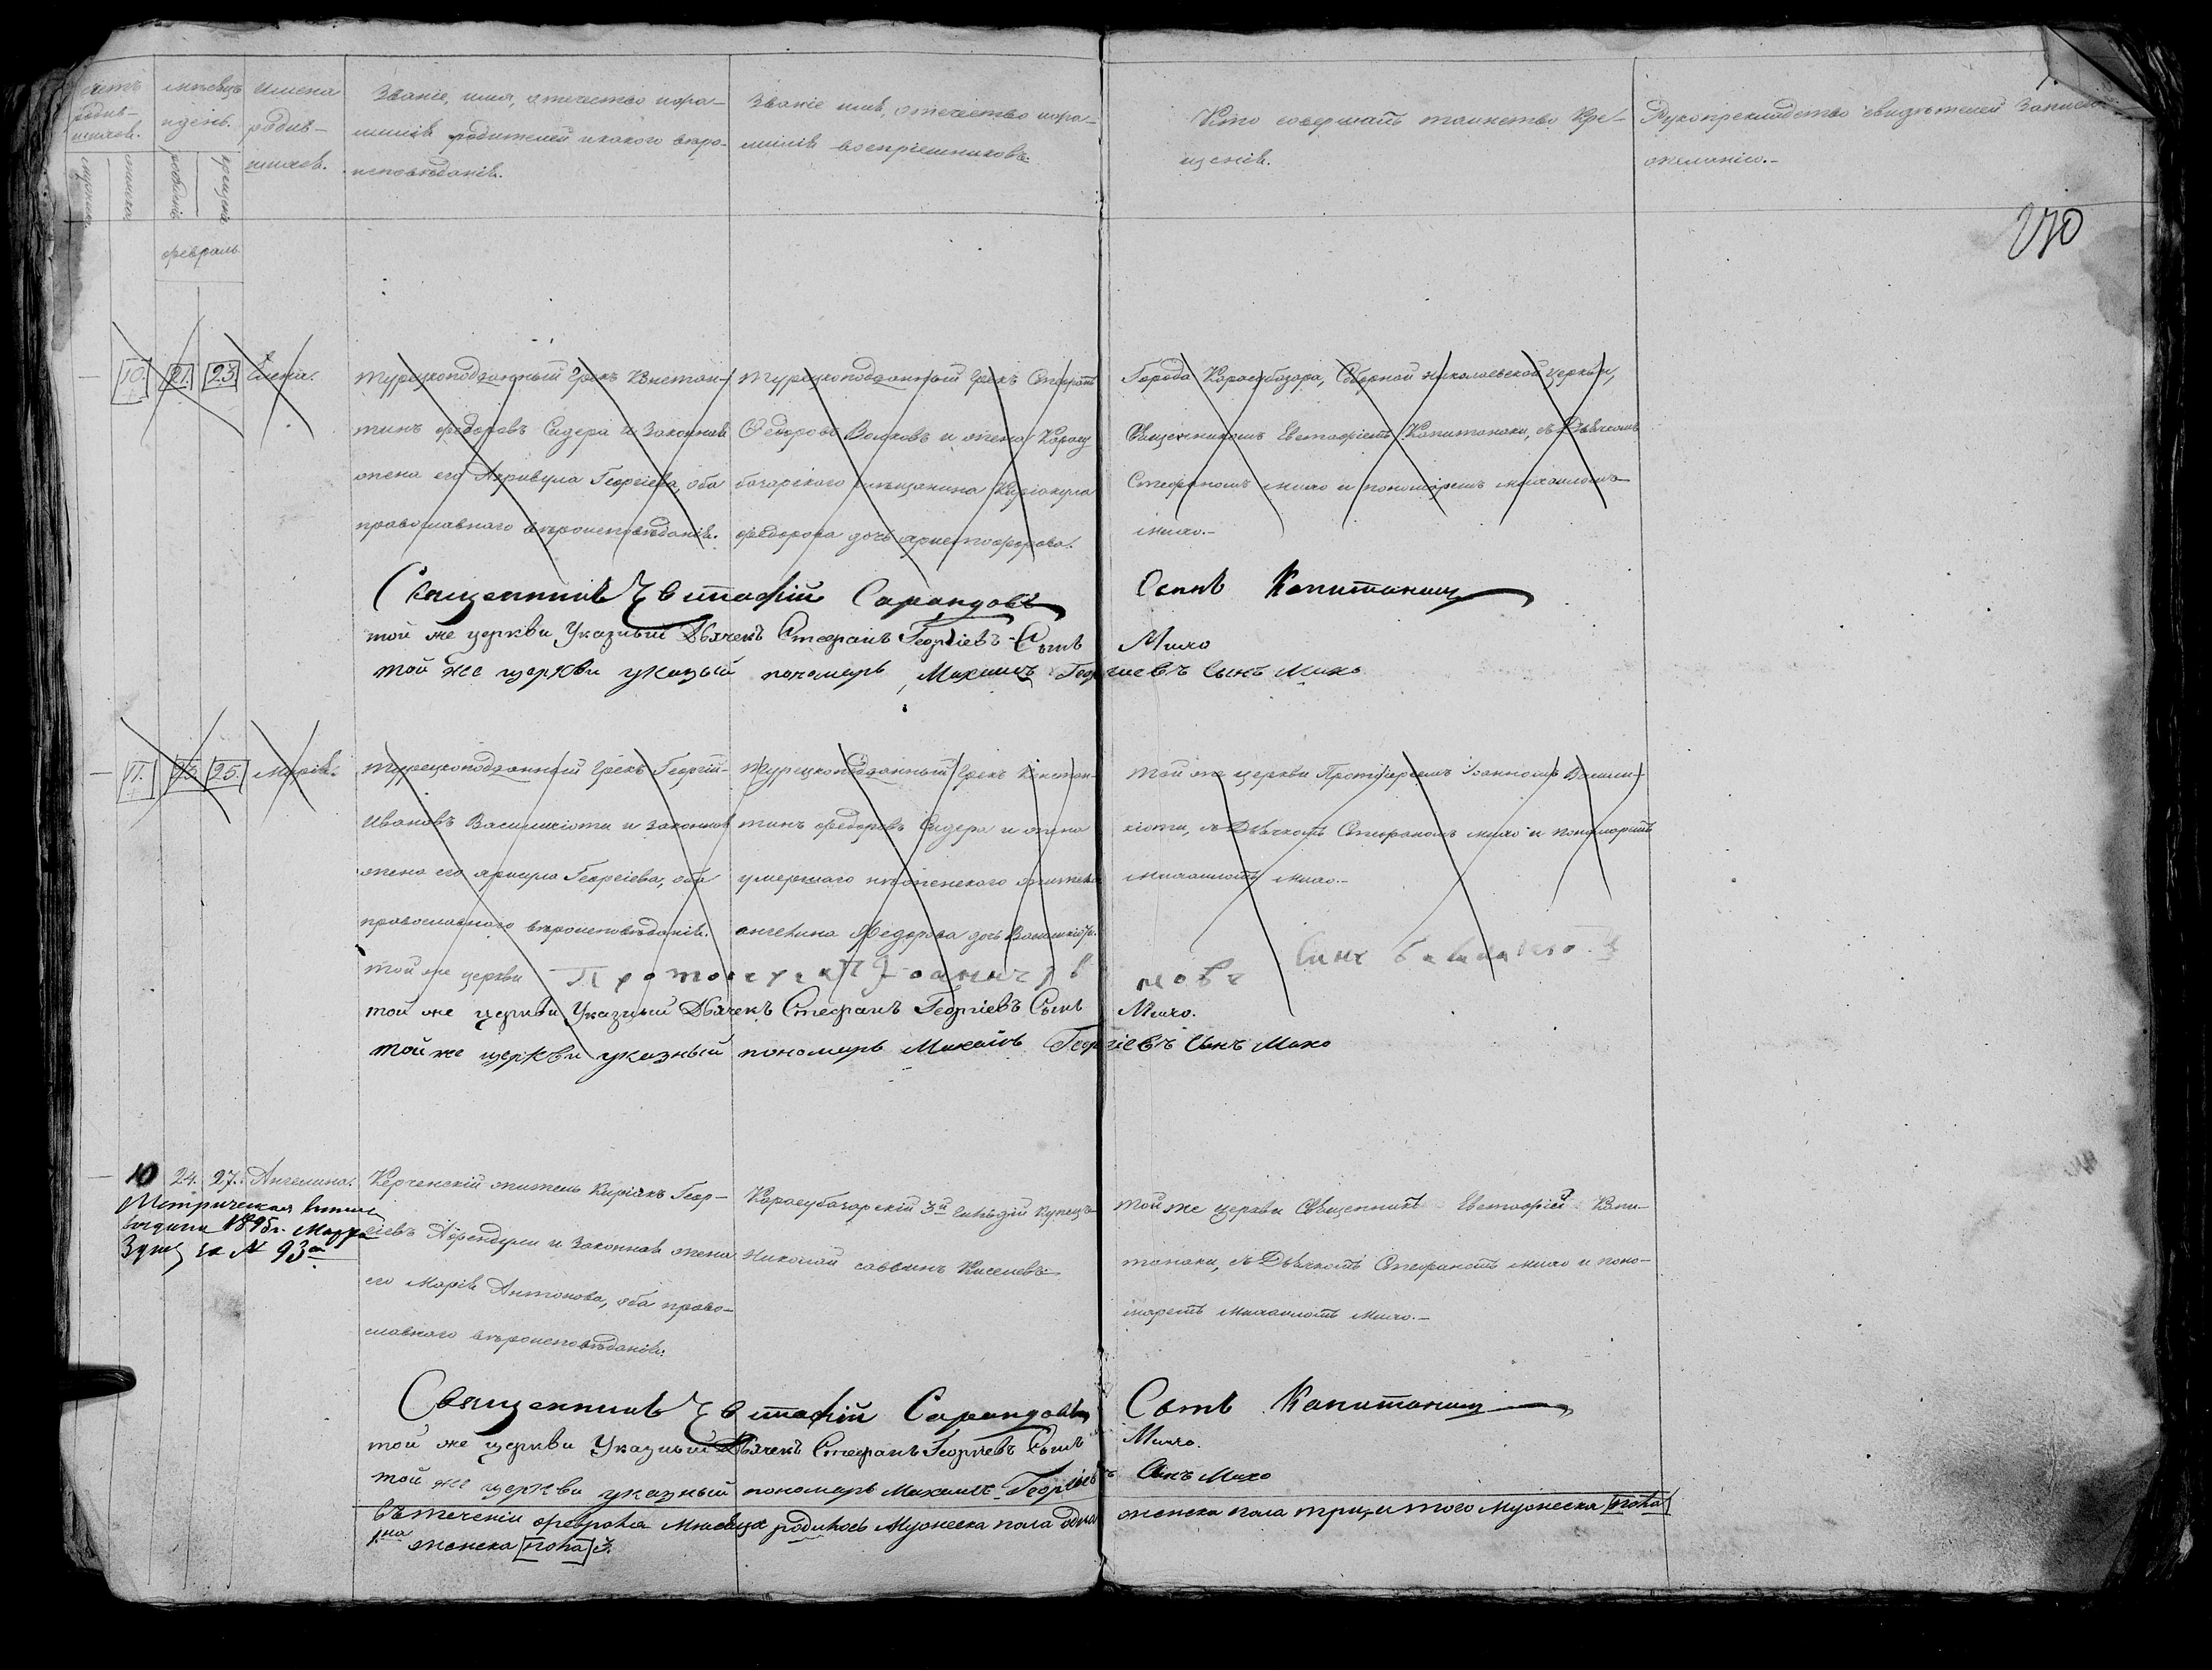 счетъ родив-шихся.
мѣсяцъ и день.
имена родив-шихся.
Званіе, имя, отечество и фа-
милія родителей и какого вѣро-
исповѣданія.
Званіе имя, отечество и фа-
милія воспріемниковъ.
Кто совершалъ таинство Кре-
щенія.
Рукоприкладство свидѣтелей записи
по желанію.
рожденія
крещенія
февраль
270
10. 21. 23. Елена.
Турецкоподданный Грекъ Констан-
тинъ Федоровъ Сидера и Законная
жена его Георгіева, оба
православнаго вѣроисповѣданія.
Турецкоподданный Грекъ
Федоровъ Волковъ и жена Карасу
базарскаго мѣщанина Киріакула
Федорова дочь
Города Карасубазара, Соборной Николаевской церкви,
Священникомъ Евстафіемъ Капитанаки, съ Дьячкомъ
Стефаномъ Михо и пономаремъ Михаиломъ
Михо.
Священникъ Евстафій Сарандовъ Сынъ Капитанаки
той же церкви Указный Дьячекъ Стефанъ Георгіевъ Сынъ Михо
той же церкви указый пономарь Михаилъ Георгиевъ Сынъ Михо
11. 23. 25. Марія.
Турецкоподданный Грекъ Георгій
Ивановъ Василикіоти и законная
жена его Георгіева, оба
православнаго вѣроисповѣданія.
Турецкоподданный Грекъ Констан-
тинъ Федоровъ Сидера и жена
умершаго нѣженскаго жителя
ангелина Федорова дочь
Той же церкви Протоіереемъ Іоанномъ Васили-
кіоти, съ Дьячкомъ Стефаномъ Михо и пономаремъ
Михаиломъ Михо.
той же церкви Протоиерей Іоаннъ
той же церкви Указный Дьячекъ Стефанъ Георгіевъ Сынъ Михо.
той же церкви указный пономарь Михаилъ Георгіевъ Сынъ Михо
10 24. 27. Ангелина.
Метрическая выпись
выдана 1895г. Марта
3 дня за № 93
Керченскій житель Киріакъ Геор-
гіевъ Афендули и Законная жена
его Марія Антонова, оба право-
славнаго вѣроисповѣданія.
Карасубазарскій 3й Гильдіи Купецъ
Николай саввинъ Киселевъ
Той же церкви Священникъ Евстафій Капи-
танаки, съ Дьячкомъ Стефаномъ Михо и поно-
маремъ Михаиломъ Михо.
Священникъ Евстафій Сарандовъ Сынъ Капитанаки
той же церкви Указный Дьячекъ Стефанъ Георгіевъ Сынъ Михо.
той же церкви указный пономарь Михаилъ Георгіевъ Сынъ Михо
Въ теченіи февраля мѣсяца родилось Мужеска пола одна женска пола три, а того Мужеска пола
1на женска пола 3.